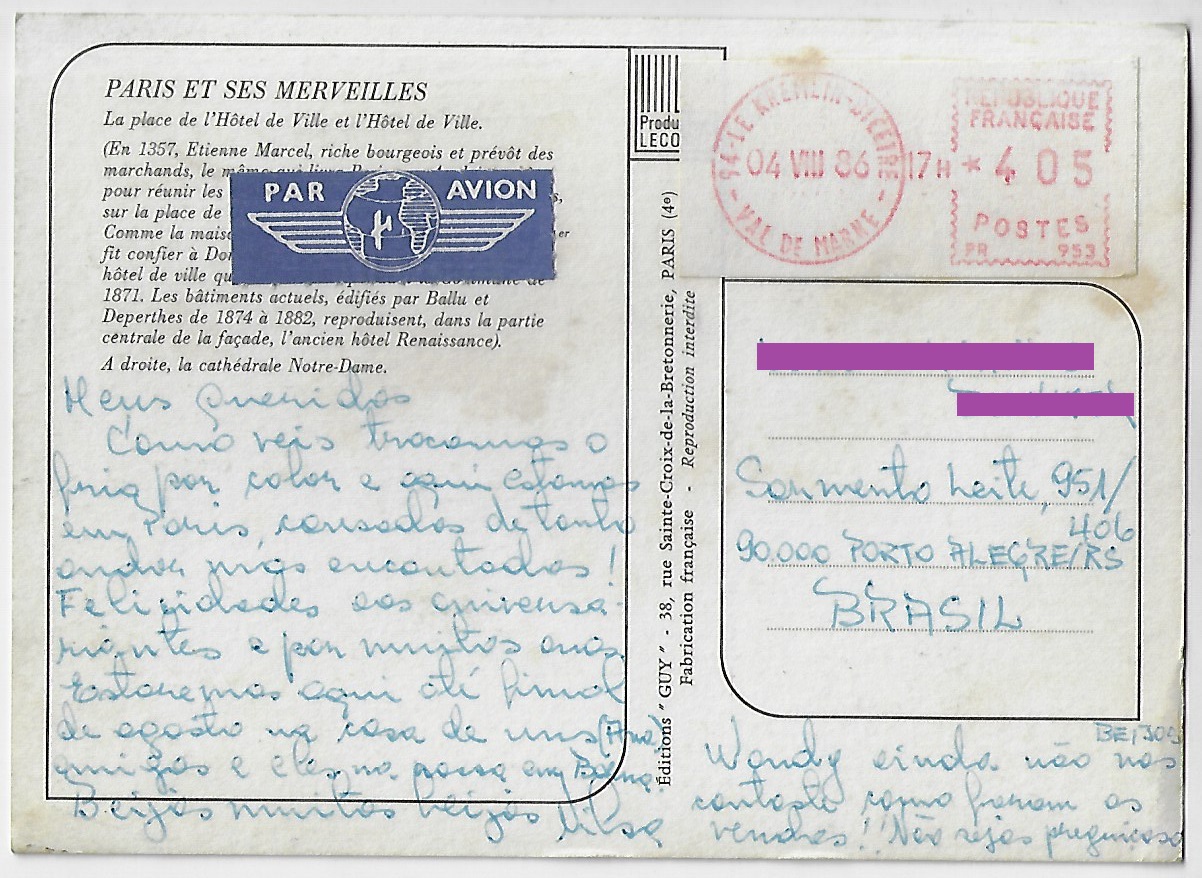 PARIS ET SES MERVEILLES
La place de l'Hôtel de Ville et l'Hôtel de Ville.
(En 1357, Etienne Marcel, riche bourgeois et prévôt des
marchands, le même
pour réunir les
sur la place de
Comme la mais
fit confier à
hôtel de ville
1871. Les bâtiments actuels, édifiés par Ballu et
Deperthes de 1874 à 1882, reproduisent, dans la partie
centrale de la façade, l'ancien hôtel Renaissance).
A droite, la cathédrale Notre-Dame.
PAR AVION
Meus Queridos
Como veis trocamos o
frio por calor e aqui estamos
em Paris, cansados de tanto
andar mas encantados!
Felicidades aos aniversa-
riantes e por muitos anos.
Estaremos aqui até final
de agosto na casa de uns (Ana)
amigos e eles na nossa em
Beijos muitos beijos Nilsa
Produ
LECO
Éditions "GUY" - 38, rue Sainte-Croix-de-la-Bretonnerie, PARIS (4e)
Fabrication française - Reproduction interdite
94-LE KREMLIN-BICETRE
04 VIII 86 17H
VAL DE MARNE
REPUBLIQUE
FRANÇAISE
*405
POSTES
PR 953
Sarmento Leite, 951/
406
90.000 PORTO ALEGRE/RS
BRASIL
BEIJOS
Wandy ainda não nos
contaste como foram as
vendas!! Não sejas preguiçosa